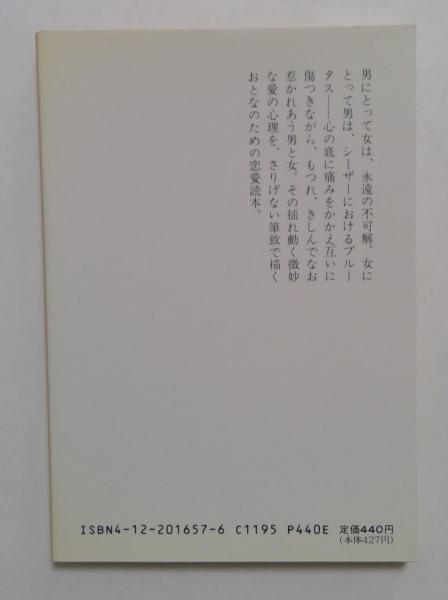 男にとって女は、永遠の不可解。女に
とって男は、シーザーにおけるブルー
タス――心の底に痛みをかかえ互いに
傷つきながら、もつれ、きしんでなお
惹かれあう男と女。その揺れ動く微妙
な愛の心理を、さりげない筆致で描く
おとなのための恋愛読本。
ISBN4-12-201657-6 C1195 P440E 定価440円
(本体427円)